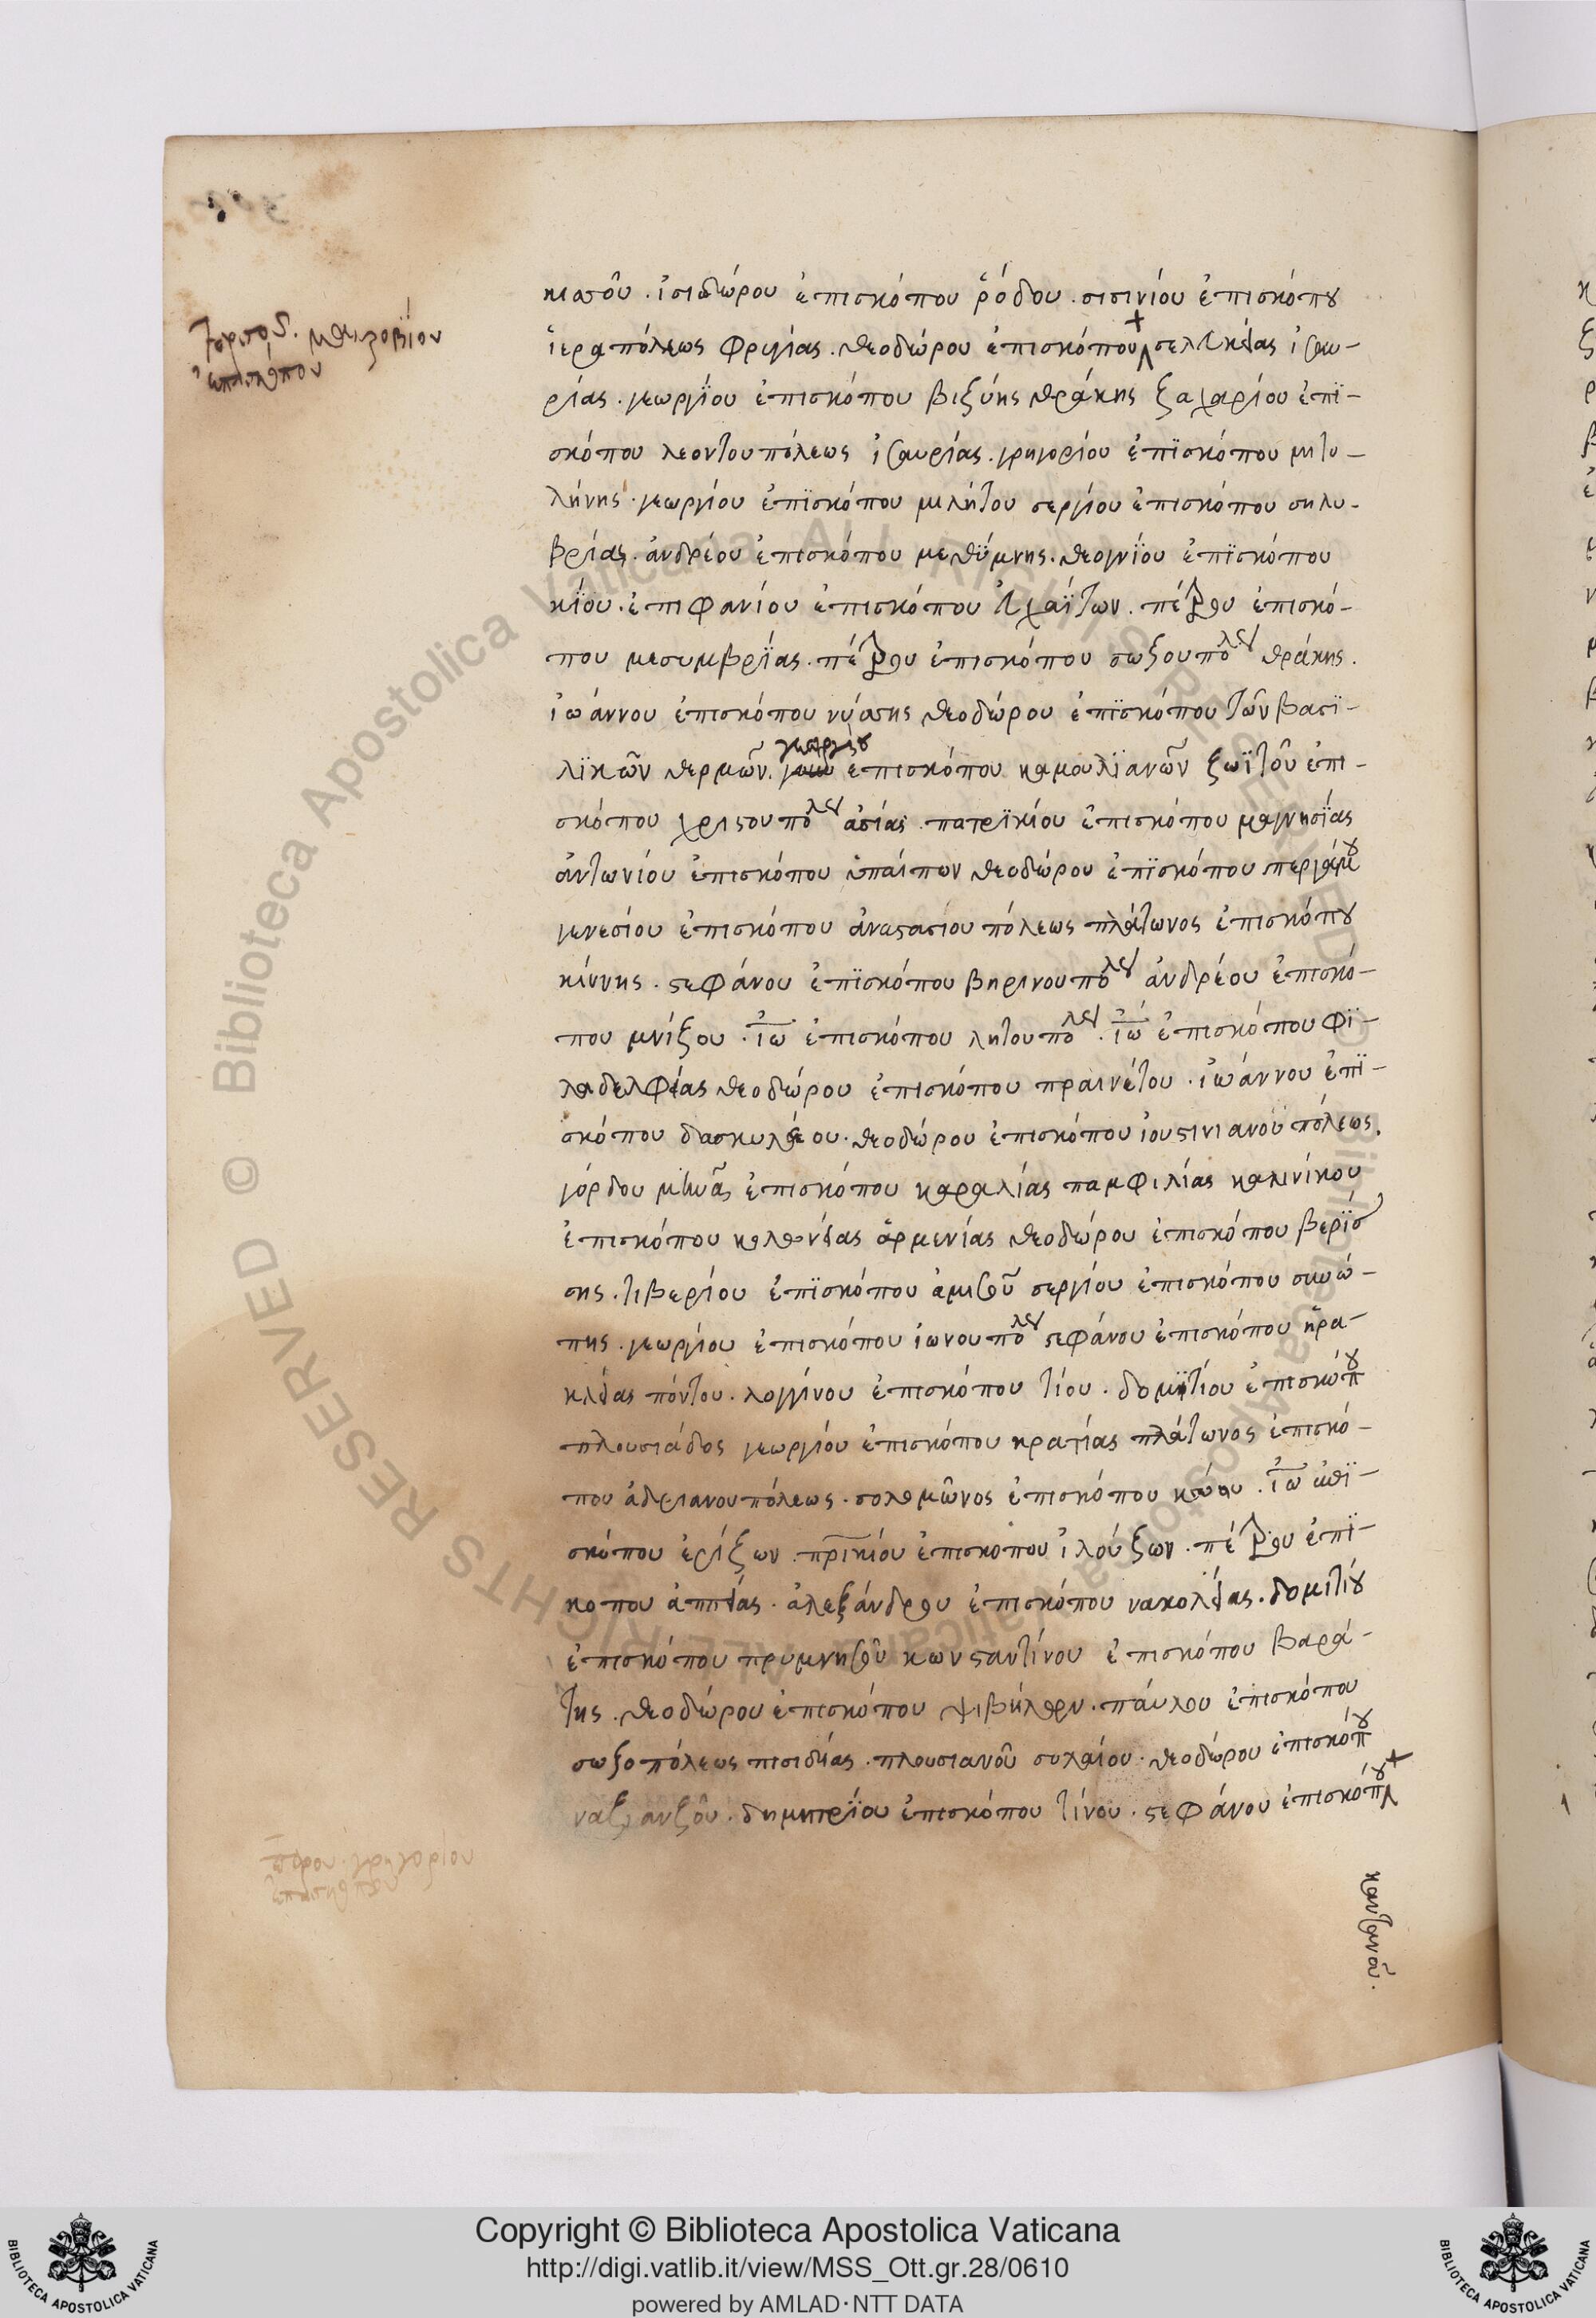 κισσοῦ . ἰσιδώρου ἐπισκόπου ῥόδου . σισινίου ἐπισκόπου
ἱεραπόλεως φρυγίας . θεοδώρου ἐπισκόπου σελευκείας ἰσαυ-
ρίας . γεωργίου ἐπισκόπου βιζύης θράκης ζαχαρίου ἐπϊ-
σκόπου λεοντουπόλεως ἰσαυρίας . γρηγορίου ἐπϊσκόπου μιτυ-
λήνης . γεωργίου ἐπϊσκόπου μιλήτου σεργίου ἐπισκόπου σηλυ-
βρίας . ἀνδρέου ἐπισκόπου μεθϋμνης . θεογνίου ἐπϊσκόπου
κίου . ἐπιφανίου ἐπισκόπου εὐχαΐτων . πέτρου ἐπισκό-
που μεσυμβρίας . πέτρου ἐπισκόπου σωζουπόλεως θράκης .
ἰωάννου ἐπισκόπου νύσσης θεοδώρου ἐπϊσκόπου τῶν βασϊ-
λϊκῶν θερμῶν . γεωργίου ἐπισκόπου καμουλϊανῶν ζωϊτοῦ ἐπι-
σκόπου χριστουπόλεως ἀσίας . πατρϊκίου ἐπισκόπου μαγνησίας
ἀντωνίου ἐπισκόπου ὑπαίπων θεοδώρου ἐπϊσκόπου περγάμου
γενεσίου ἐπισκόπου ἀναστασίου πόλεως πλάτωνος ἐπισκόπου
κίννης . στεφάνου ἐπϊσκόπου βηρινουπόλεως ἀνδρέου ἐπισκό-
που μνίζου . ἰω ἐπισκόπου λητουπόλεως . ἰω ἐπισκόπου φϊ-
λαδελφείας θεοδώρου ἐπισκόπου πραινέτου . ἰωάννου ἐπϊ-
σκόπου δασκυλείου . θεοδώρου ἐπισκόπου ἰουστινιανοὺ πόλεως .
γόρδου μηνᾶ ἐπισκόπου καραλίας παμφιλίας καλινίκου
ἐπισκόπου κολωνείας ἀρμενίας θεοδώρου ἐπισκόπου βερΐσ
σης . τιβερίου ἐπϊσκόπου ἀμισοῦ σεργίου ἐπισκόπου σινώ-
πης . γεωργίου ἐπισκόπου ἰωνουπόλεως στεφάνου ἐπισκόπου ἡρα-
κλείας πόντου . λογγίνου ἐπισκόπου τίου . δομϊτίου ἐπισκόπου
πλουσιάδος γεωργίου ἐπισκόπου κρατίας πλάτωνος ἐπισκό-
που ἀδριανουπόλεως . σολομῶνος ἐπισκόπου . ἰω ἐπϊ-
σκόπου ἐρίζων . πρικίου ἐπισκοπου ἰλούζων . πέτρου ἐπϊ-
κοπου ἀππείας . ἀλεξάνδρου ἐπισκόπου νακολείας . δομιτίου
ἐπισκόπου πρυμνησοῦ κωνσταντίνου ἐπισκόπου βαρά-
της . θεοδώρου ἐπισκόπου ψιβήλων . παύλου ἐπισκόπου
σωζοπόλεως πισιδίας . πλουσιανοῦ συλαίου . θεοδώρου ἐπισκόπου
ναζιανζοῦ . δημητρίου ἐπισκόπου τίνου . στεφάνου ἐπισκόπου
ἐπισκόπου
Copyright © Biblioteca Apostolica Vaticana
http://digi.vatlib.it/view/MSS_Ott.gr.28/0610
powered by AMLAD · NTT DATA